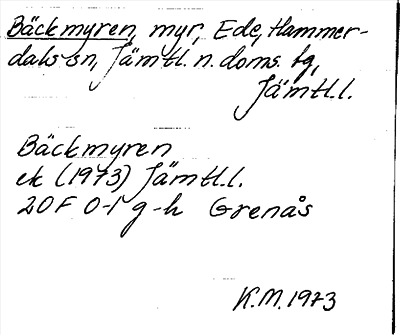 Bäckmyren, myr, Ede, Hammer-
dals sn, Jämtl. n. doms. tg,
Jämtl. l.
Bäckmyren
ek (1973) Jämtl. l.
20F 0-1 g-h Grenås
K.M. 1973